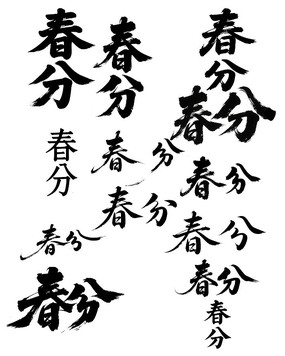 春分
春分
春分
春分
春分
春分
春分
春分
春分
春分
春分
春分
春分